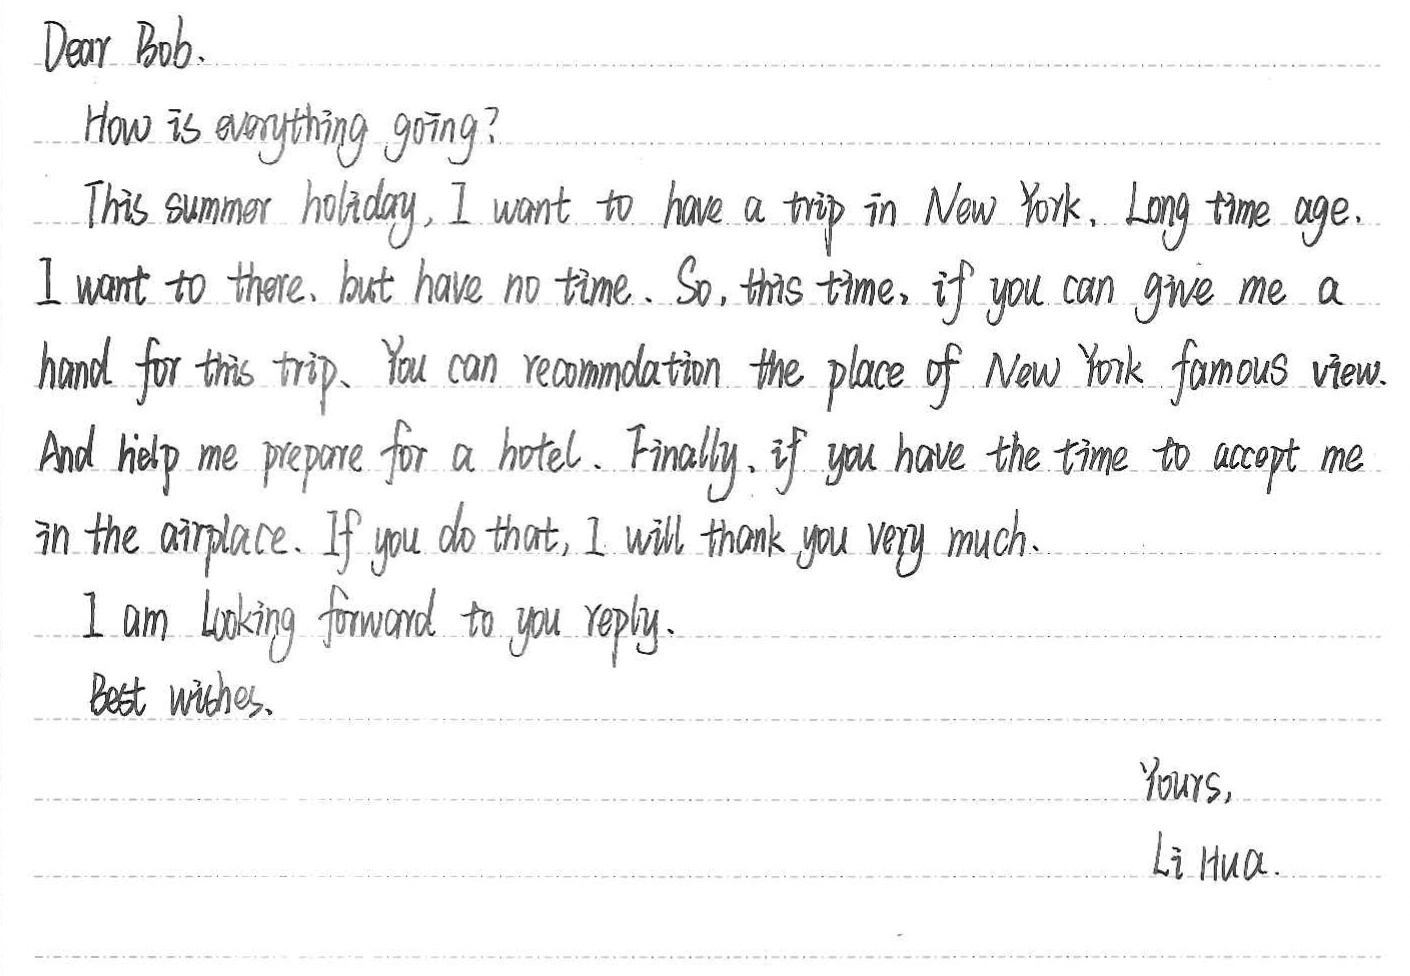 Dear Bob.
How is everything going?
This summer holiday, I want to have a trip in New York. Long time age.
I want to there. but have no time. So, this time, if you can give me a
hand for this trip. You can recommdation the place of New York famous view.
And help me prepare for a hotel. Finally, if you have the time to accept me
in the airplace. If you do that, I will thank you very much.
I am looking forward to you reply.
Best wishes.
Yours,
Li Hua.